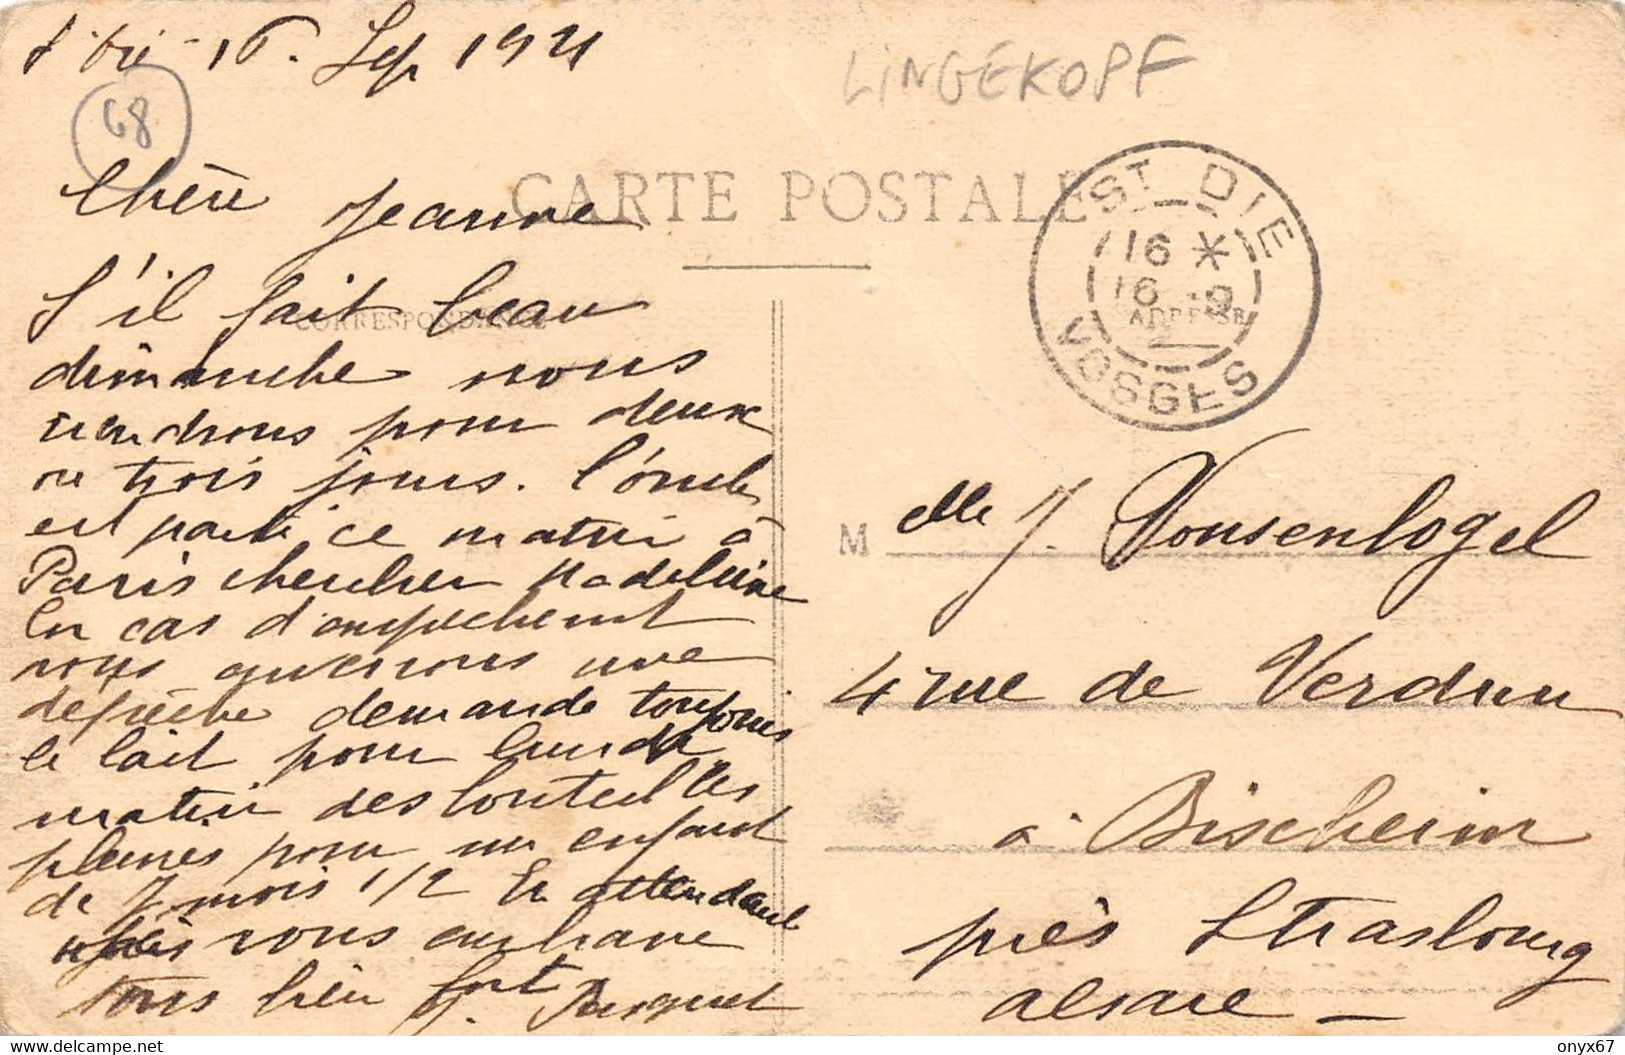 16 Sep 1921
LINGEKOPF
68
CARTE POSTALE
CORRESPONDANCE
ADRESSE
ST DIE
16 *
16 -9
VOSGES
Chère Jeanne
S'il fait beau
dimanche nous
viendrons pour deux
ou trois jours. l'oncle
est parti ce matin à
Paris chercher Madeleine
En cas d'empechement
nous enverrons une
depêche demande toujours
le lait pour lundi
matin des bouteilles
pleines pour un enfant
de 7 mois 1/2 En attendant
vous embrasse
tous bien fort J.
M elle J. Vonsenlogel
4 rue de Verdun
à Bischeim
près Strasbourg
Alsace
Delcampe.net
onyx67